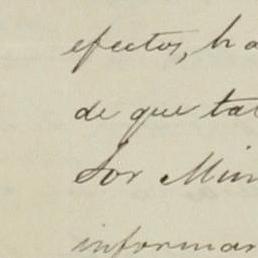 efectos, ha
de que tal
Sor Min
informar